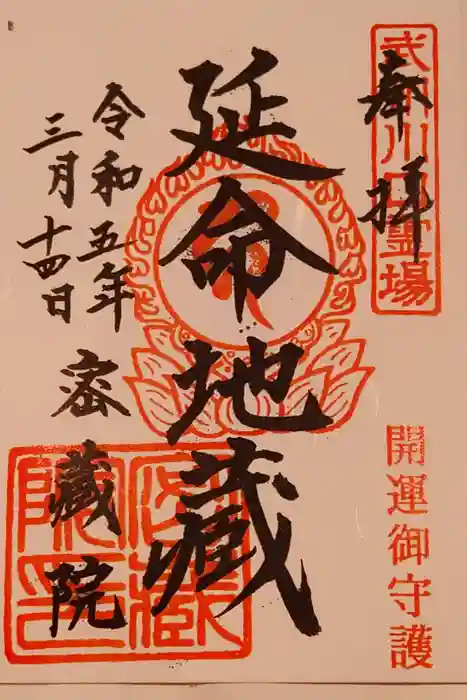 奉拝
川口霊場
開運御守護
延命地蔵
令和五年
三月十四日
密蔵院